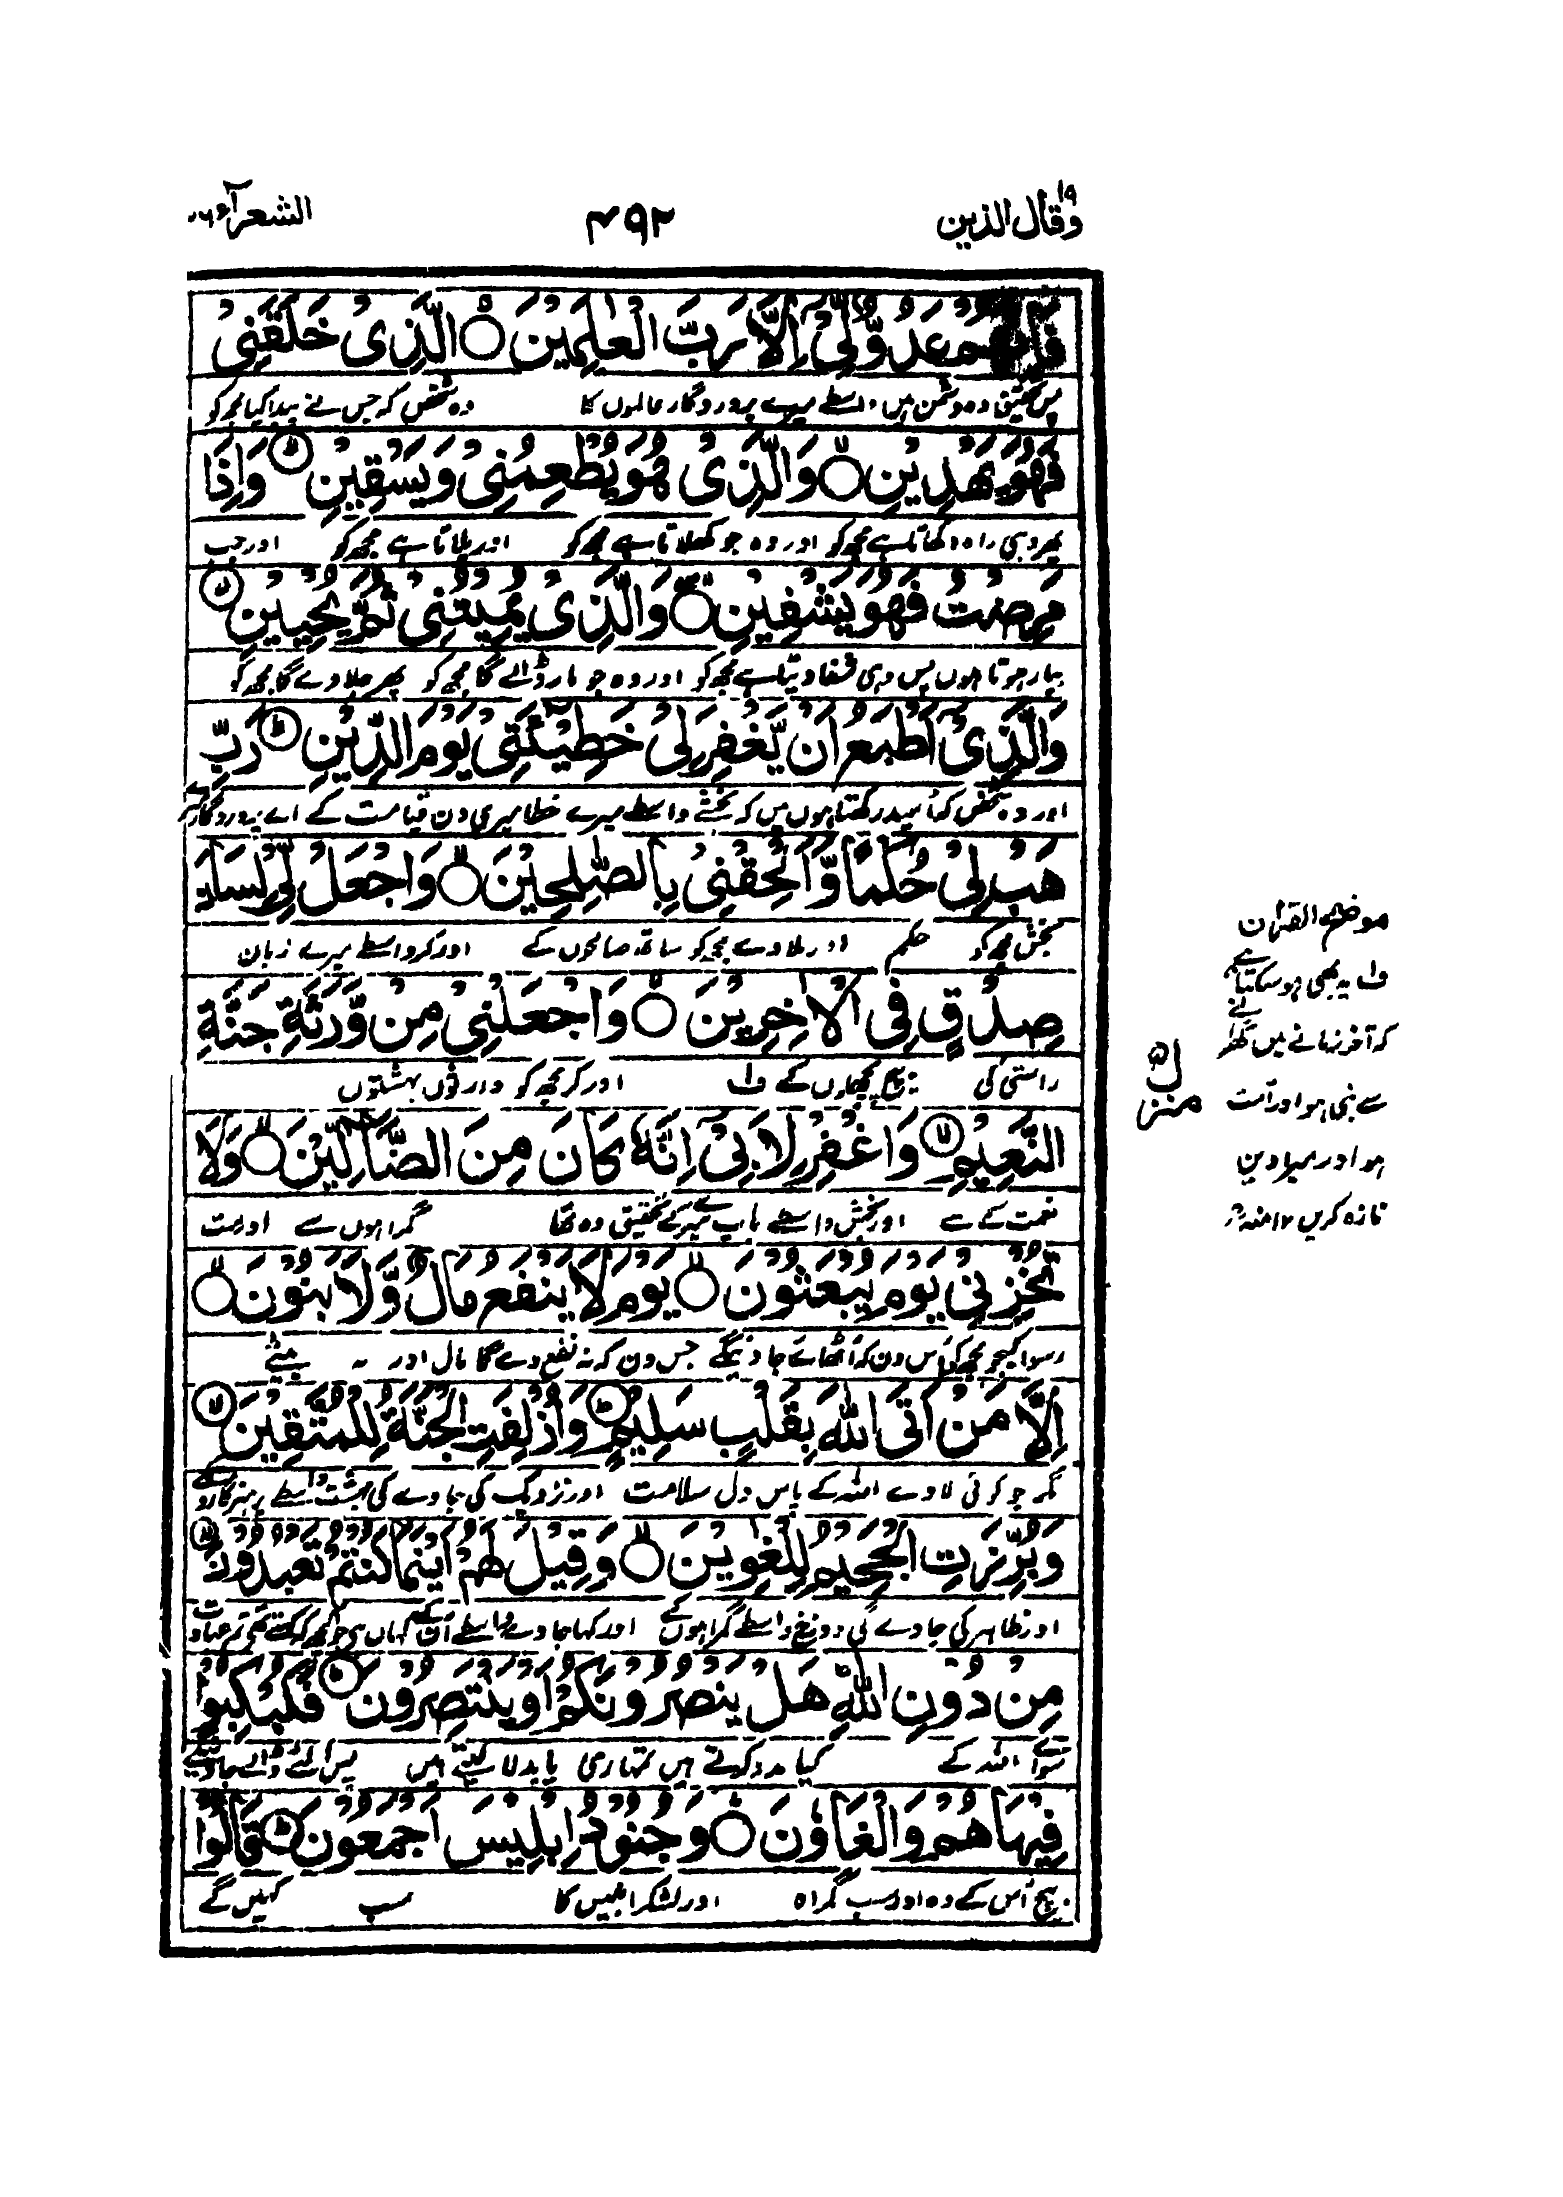 وقال الذین ۱۹
۴۹۲
الشعرآء ۲۶
فَاِنَّهُمْ عَدُوٌّ لِّیْۤ اِلَّا رَبَّ الْعٰلَمِیْنَ ۝ الَّذِیْ خَلَقَنِیْ
پس تحقیق وہ دشمن ہیں واسطے میرے پروردگار عالموں کا وہ شخص کہ جس نے پیدا کیا مجھ کو
فَهُوَ یَهْدِیْنِ ۝ۙ وَالَّذِیْ هُوَ یُطْعِمُنِیْ وَیَسْقِیْنِ ۝ۙ وَاِذَا
پھر وہی راہ دکھاتا ہے مجھ کو اور وہ جو کھلاتا ہے مجھ کو اور پلاتا ہے مجھ کو اور جب
مَرِضْتُ فَهُوَ یَشْفِیْنِ ۝ وَالَّذِیْ یُمِیْتُنِیْ ثُمَّ یُحْیِیْنِ ۝ۙ
بیمار ہوتا ہوں پس وہی شفا دیتا ہے مجھ کو اور وہ جو مار ڈالے گا مجھ کو پھر جلاوے گا مجھ کو
وَالَّذِیْۤ اَطْمَعُ اَنْ یَّغْفِرَ لِیْ خَطِیْٓئَتِیْ یَوْمَ الدِّیْنِ ۝ؕ رَبِّ
اور وہ شخص کہ امید رکھتا ہوں میں کہ بخشے واسطے میرے خطا میری دن قیامت کے اے پروردگار میرے
هَبْ لِیْ حُكْمًا وَّاَلْحِقْنِیْ بِالصّٰلِحِیْنَ ۝ۙ وَاجْعَلْ لِّیْ لِسَانَ
بخش مجھ کو حکم اور ملا دے مجھ کو ساتھ صالحوں کے اور کر واسطے میرے زبان
صِدْقٍ فِی الْاٰخِرِیْنَ ۝ۙ وَاجْعَلْنِیْ مِنْ وَّرَثَةِ جَنَّةِ
راستی کی بیچ پچھلوں کے ف۱ اور کر مجھ کو وارثوں بہشتوں
النَّعِیْمِ ۝ۙ وَاغْفِرْ لِاَبِیْۤ اِنَّهٗ كَانَ مِنَ الضَّآلِّیْنَ ۝ۙ وَلَا
نعمت کے سے اور بخش واسطے باپ میرے کے تحقیق وہ تھا گمراہوں سے اور مت
تُخْزِنِیْ یَوْمَ یُبْعَثُوْنَ ۝ۙ یَوْمَ لَا یَنْفَعُ مَالٌ وَّلَا بَنُوْنَ ۝ۙ
رسوا کیجیو مجھ کو اس دن کہ اٹھائے جاوینگے جس دن کہ نہ نفع دے گا مال اور نہ بیٹے
اِلَّا مَنْ اَتَی اللّٰهَ بِقَلْبٍ سَلِیْمٍ ۝ؕ وَاُزْلِفَتِ الْجَنَّةُ لِلْمُتَّقِیْنَ ۝ۙ
مگر جو کوئی لاوے اللہ کے پاس دل سلامت اور نزدیک کی جاوے گی بہشت واسطے پرہیزگاروں کے
وَبُرِّزَتِ الْجَحِیْمُ لِلْغٰوِیْنَ ۝ۙ وَقِیْلَ لَهُمْ اَیْنَمَا كُنْتُمْ تَعْبُدُوْنَ ۝ۙ
اور ظاہر کی جاوے گی دوزخ واسطے گمراہوں کے اور کہا جاوے واسطے ان کے کہاں ہے جو کچھ کہ تھے تم عبادت
مِنْ دُوْنِ اللّٰهِ هَلْ یَنْصُرُوْنَكُمْ اَوْ یَنْتَصِرُوْنَ ۝ؕ فَكُبْكِبُوْا
سوائے اللہ کے کیا مدد کرتے ہیں تمہاری یا بدلا لیتے ہیں پس الٹے ڈالے جاوینگے
فِیْهَا هُمْ وَالْغَاوٗنَ ۝ۙ وَجُنُوْدُ اِبْلِیْسَ اَجْمَعُوْنَ ۝ؕ قَالُوْا
بیچ اس کے وہ اور سب گمراہ اور لشکر ابلیس کا سب کہیں گے
موضح القرآن
ف۱ یہ بھی ہو سکتا ہے
کہ آخر زمانے میں میرے گھرانے
سے نبی ہو اور امت
ہو اور میرا دین
تازہ کریں ۱۲ منہ رح
منزل ۵